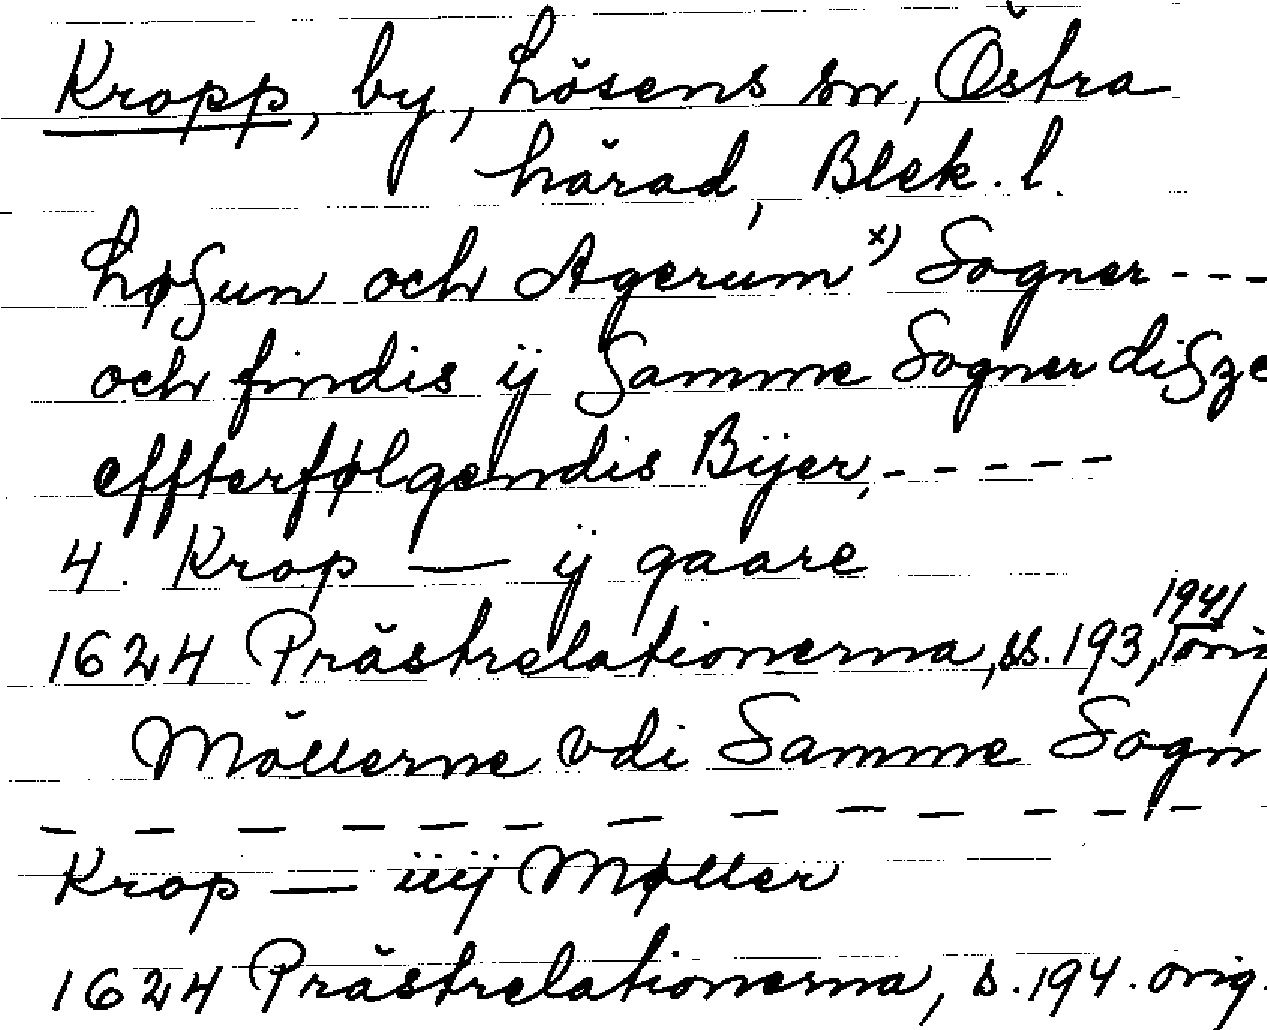 Kropp, by, Lösens sn, Östra
härad, Blek. l.
Løsun och Agerum x) Sogner - - -
och findis ij Samme Sogner disze
effterfølgendis Bijer, - - - - -
4. Krop — ij gaare
1624 Prästrelationerna, ss. 193, 194, orig
Möllerne vdi Samme Sogn
— — — — — — — — — — — —
Krop — iiij Møller
1624 Prästrelationerna, s. 194. orig.